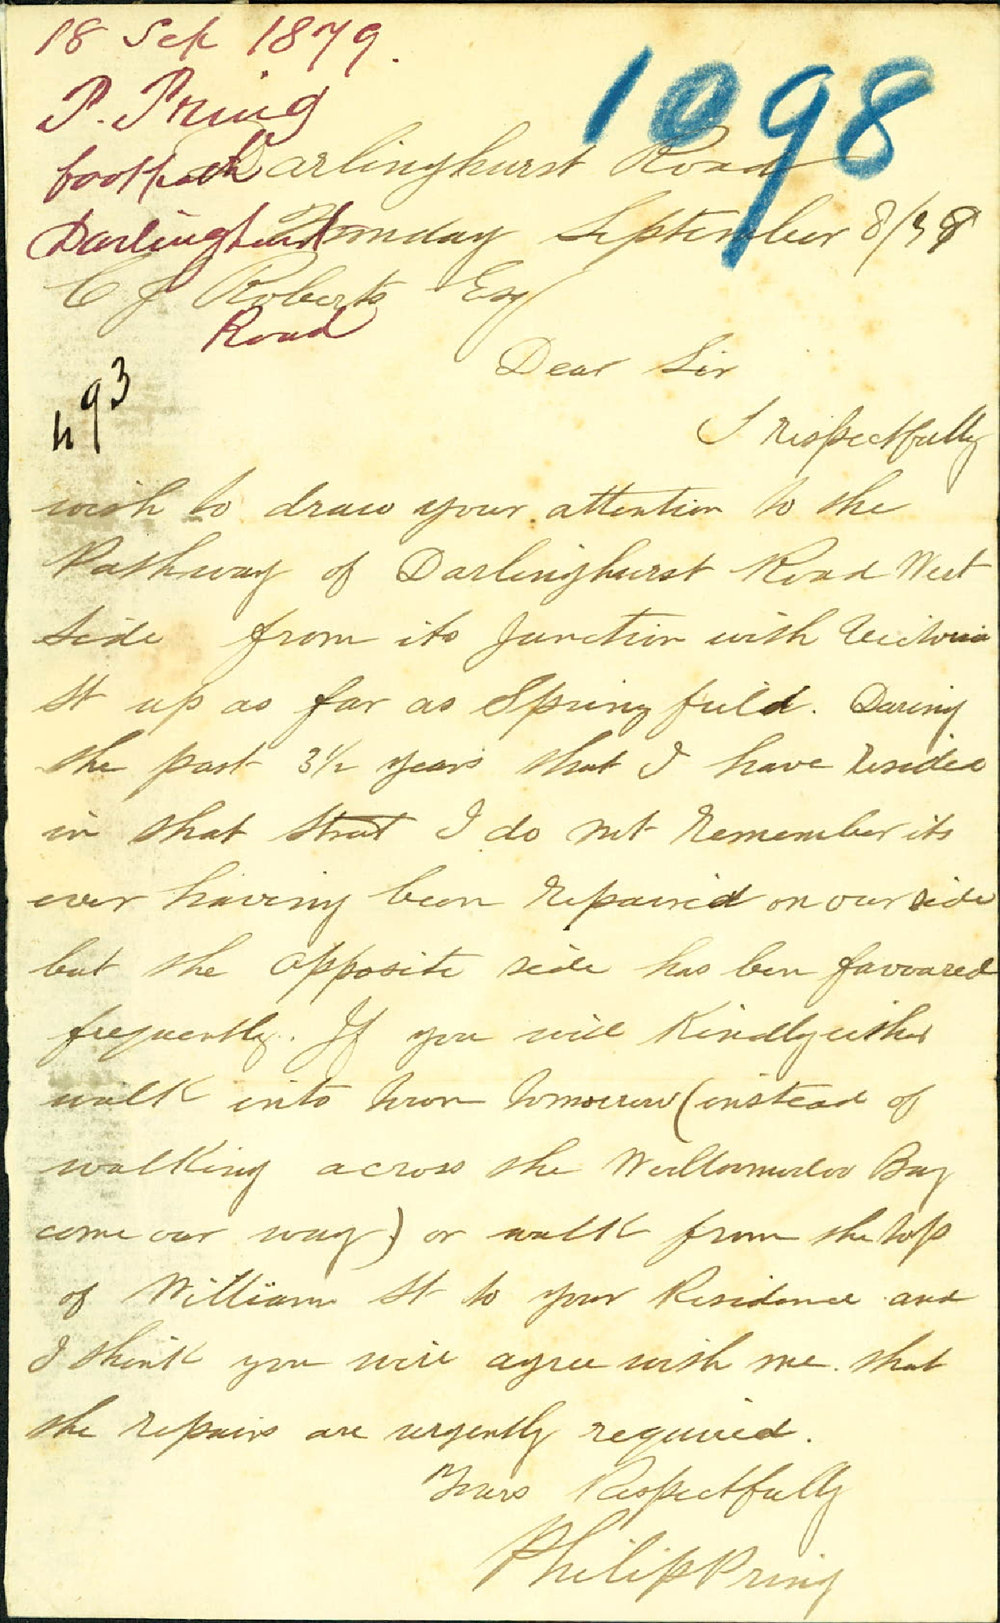 18 Sep 1879.
P. Pring
footpath
Darlinghurst
Road
1098
493
Darlinghurst Road
Monday September 8/79
C J Roberts Esq
Dear Sir
I respectfully
wish to draw your attention to the
Pathway of Darlinghurst Road West
Side from its Junction with Victoria
St up as far as Springfield. During
the past 3½ years that I have resided
in that Street I do not Remember its
ever having been repaired on our side
but the opposite side has been favoured
frequently. If you will Kindly either
walk into town tomorrow (instead of
walking across the Woolloomooloo Bay
come our way) or walk from the top
of William St to your Residence and
I think you will agree with me that
the repairs are urgently required.
Yours Respectfully
Philip Pring